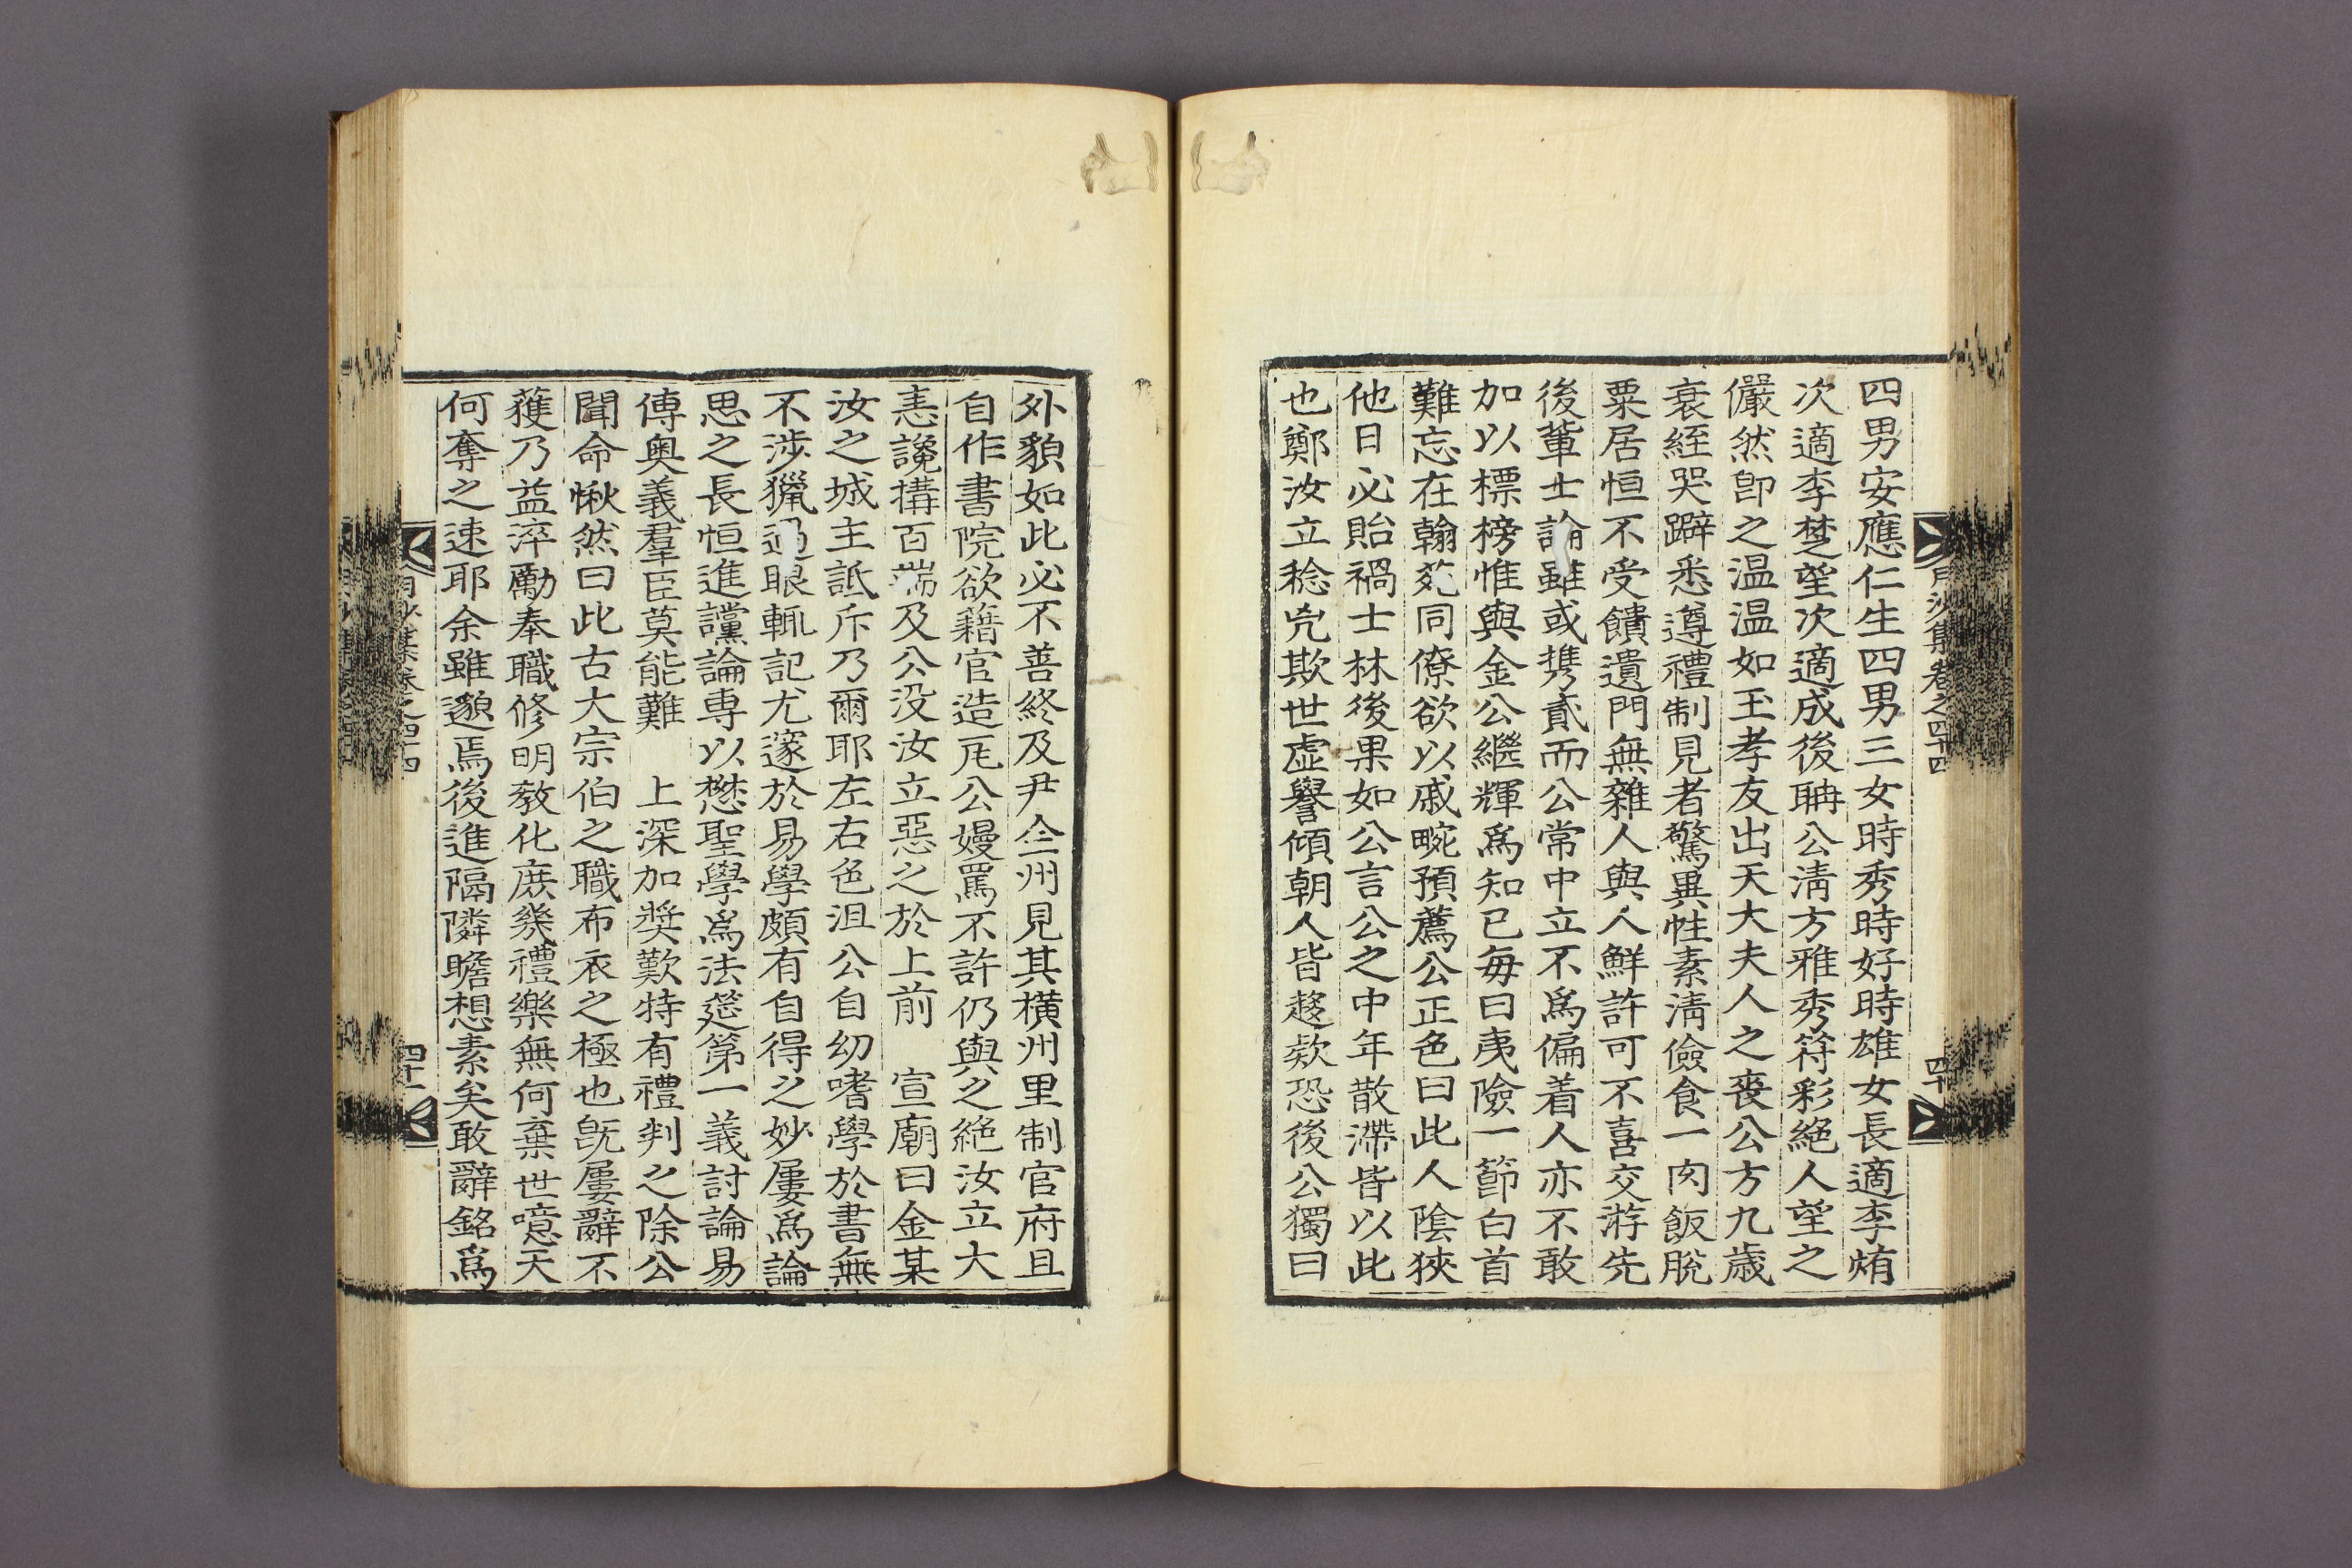 四男安應仁生四男三女時秀時好時雄女長適李烠
次適李楚望次適成後聃公淸方雅秀符彩絶人望之
儼然卽之温温如玉孝友出天大夫人之喪公方九歲
衰絰哭躃悉遵禮制見者驚異性素淸儉食一肉飯脫
粟居恒不受饋遺門無雜人與人鮮許可不喜交游先
後輩士論雖或携貳而公常中立不爲偏着人亦不敢
加以標榜惟與金公繼輝爲知已每曰夷險一節白首
難忘在翰苑同僚欲以戚畹預薦公正色曰此人陰狹
他日必貽禍士林後果如公言公之中年散滯皆以此
也鄭汝立稔兇欺世虛譽傾朝人皆趍欵恐後公獨曰
月沙集卷之四十四
四十
外貌如此必不善終及尹仝州見其橫州里制官府且
自作書院欲籍官造瓦公嫚罵不許仍與之絶汝立大
恚讒構百端及公没汝立惡之於上前 宣廟曰金某
汝之城主詆斥乃爾耶左右色沮公自幼嗜學於書無
不涉獵過眼輒記尤邃於易學頗有自得之妙屢爲論
思之長恒進讜論專以懋聖學爲法筵第一義討論易
傳奧義羣臣莫能難 上深加奬歎特有禮判之除公
聞命愀然曰此古大宗伯之職布衣之極也旣屢辭不
獲乃益淬勵奉職修明敎化庶幾禮樂無何棄世噫天
何奪之速耶余雖邈焉後進隔隣瞻想素矣敢辭銘爲
月沙集卷之四十四
四十一